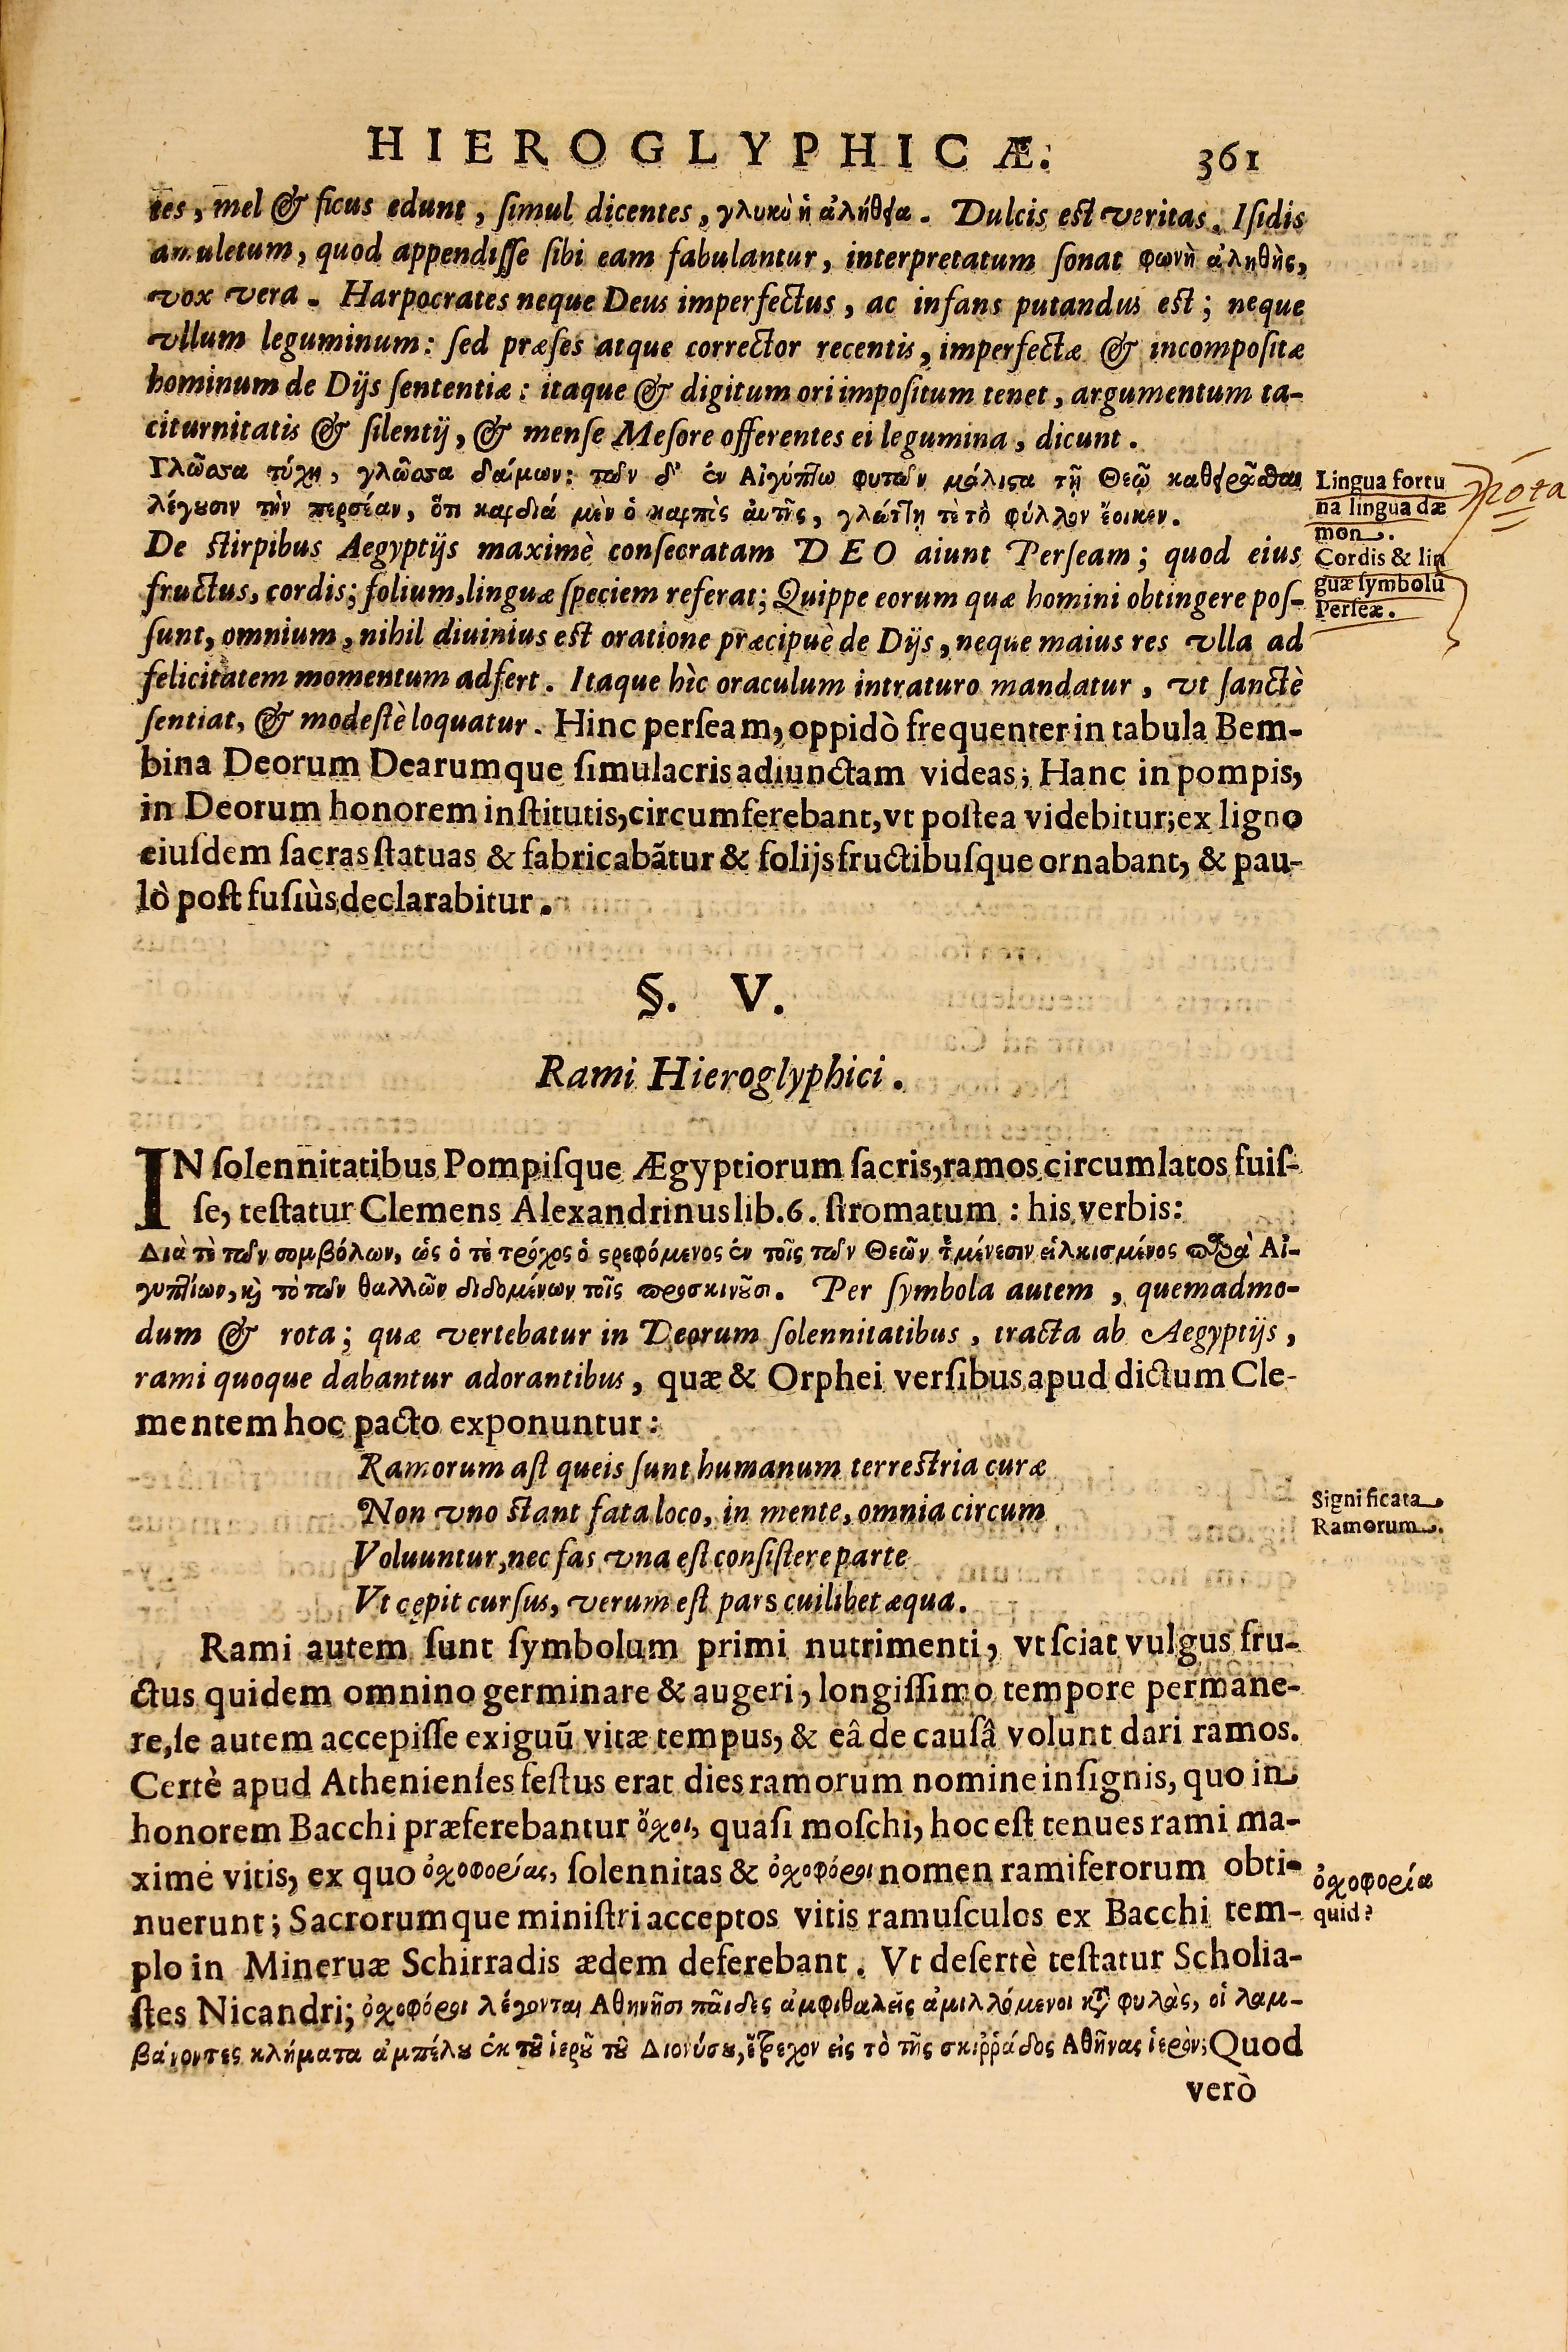 HIEROGLYPHICÆ. 361
tes, mel & ficus edunt, ſimul dicentes, γλυκὺ ἡ ἀλήθεια. Dulcis est veritas. Iſidis
amuletum, quod appendiſſe ſibi eam fabulantur, interpretatum ſonat φωνὴ ἀληθὴς,
vox vera. Harpocrates neque Deus imperfectus, ac infans putandus est; neque
vllum leguminum: ſed præſes atque corrector recentis, imperfectæ & incompoſitæ
hominum de Dijs ſententiæ: itaque & digitum ori impoſitum tenet, argumentum ta-
citurnitatis & ſilentij, & menſe Meſore offerentes ei legumina, dicunt.
Γλῶσσα τύχη, γλῶσσα δαίμων: τῶν δ' ἐν Αἰγύπτῳ φυτῶν μάλιςα τῇ Θεῷ καθιερῶσθαι
λέγουσιν τὴν περσέαν, ὅτι καρδιά μὲν ὁ καρπὸς ἀυτῆς, γλώττῃ τὲ τὸ φύλλον ἔοικεν.
Lingua fortu
na lingua dæ
mon.
Cordis & lin
guæ ſymbolũ
Perſeæ.
nota
De stirpibus Aegyptijs maximè conſecratam DEO aiunt Perſeam; quod eius
fructus, cordis; folium, linguæ ſpeciem referat; Quippe eorum quæ homini obtingere poſ-
ſunt, omnium, nihil diuinius est oratione præcipuè de Dijs, neque maius res vlla ad
felicitatem momentum adfert. Itaque hìc oraculum intraturo mandatur, vt ſanctè
ſentiat, & modeſtè loquatur. Hinc perſeam, oppidò frequenter in tabula Bem-
bina Deorum Dearumque ſimulacris adiunctam videas; Hanc in pompis,
in Deorum honorem inſtitutis, circumferebant, vt poſtea videbitur; ex ligno
eiuſdem ſacras ſtatuas & fabricabãtur & folijs fructibuſque ornabant, & pau-
lò poſt fuſiùs declarabitur.
§. V.
Rami Hieroglyphici.
IN ſolennitatibus Pompiſque Ægyptiorum ſacris, ramos circumlatos fuiſ-
ſe, teſtatur Clemens Alexandrinus lib. 6. ſtromatum : his verbis:
Διὰ τὸ τῶν συμβόλων, ὡς ὁ τὸ τρόχος ὁ ςρεφόμενος ἐν τοῖς τῶν Θεῶν τεμένεσιν εἱλκισμένος παρὰ Αἰ-
γυπτίων, καὶ τὸ τῶν θαλλῶν διδομένων τοῖς προσκινοῦσι. Per ſymbola autem, quemadmo-
dum & rota; quæ vertebatur in Deorum ſolennitatibus, tracta ab Aegyptijs,
rami quoque dabantur adorantibus, quæ & Orphei verſibus apud dictum Cle-
mentem hoc pacto exponuntur:
Ramorum aſt queis ſunt humanum terrestria curæ
Non vno stant fata loco, in mente, omnia circum
Voluuntur, nec fas vna eſt conſiſtere parte
Vt cępit curſus, verum eſt pars cuilibet æqua.
Significata
Ramorum.
Rami autem ſunt ſymbolum primi nutrimenti, vt ſciat vulgus fru-
ctus quidem omnino germinare & augeri, longiſſimo tempore permane-
re, ſe autem accepiſſe exiguũ vitæ tempus, & eâ de cauſâ volunt dari ramos.
Certè apud Athenienſes feſtus erat dies ramorum nomine inſignis, quo in
honorem Bacchi præferebantur ὄχοι, quaſi moſchi, hoc eſt tenues rami ma-
ximè vitis, ex quo ὀχοφορίας, ſolennitas & ὀχοφόροι nomen ramiferorum obti-
nuerunt; Sacrorumque miniſtri acceptos vitis ramuſculos ex Bacchi tem-
ὀχοφορία
quid?
plo in Mineruæ Schirradis ædem deferebant. Vt deſertè teſtatur Scholia-
ſtes Nicandri; ὀχοφόροι λέγονται Ἀθηνῆσι παῖδες ἀμφιθαλεῖς ἁμιλλόμενοι κατὰ φυλὰς, οἱ λαμ-
βάνοντες κλήματα ἀμπέλου ἐκ τοῦ ἱεροῦ τοῦ Διονύσου, ἔτρεχον εἰς τὸ τῆς σκιῤῥάδος Ἀθῆνας ἱερὸν; Quod
verò